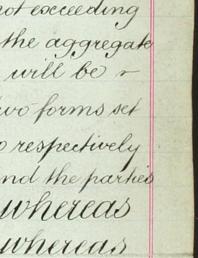 not exceeding
the aggregate
will be
two forms set
respectively
and the parties
whereas
whereas